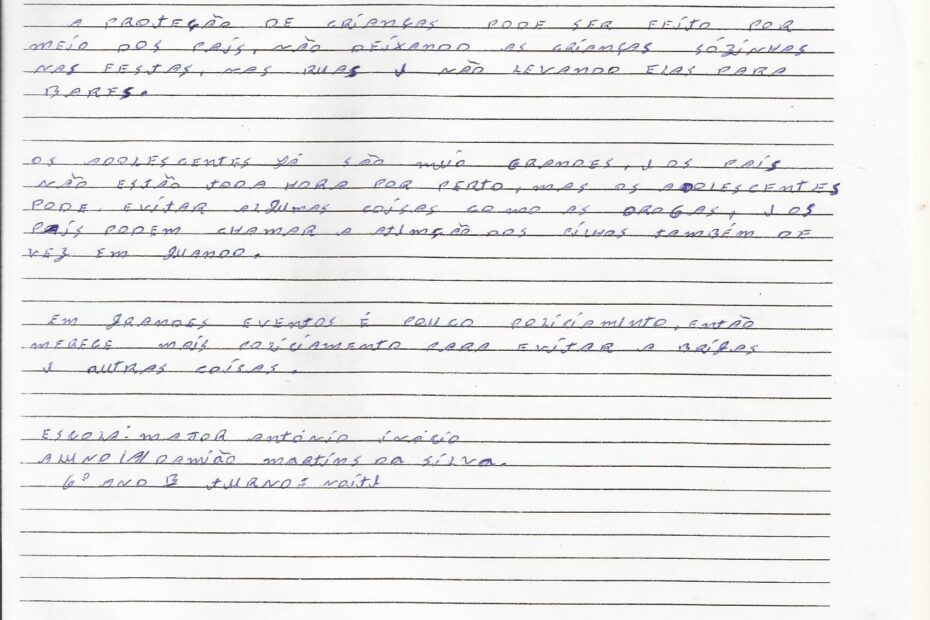 A PROTEÇÃO DE CRIANÇAS PODE SER FEITO POR
MEIO DOS PAÍS, NÃO DEIXANDO AS CRIANÇAS SÓZINHAS
NAS FESTAS, NAS RUAS E NÃO LEVANDO ELAS PARA
BARES.
OS ADOLESCENTES JÁ SÃO MUIO GRANDES, E OS PAÍS
NÃO ESTÃO TODA HORA POR PERTO, MAS OS ADOLESCENTES
PODE EVITAR ALGUMAS COISAS COMO AS DROGAS, E OS
PAÍS PODEM CHAMAR A ATENÇÃO DOS FILHOS TAMBÉM DE
VEZ EM QUANDO.
EM GRANDES EVENTOS É POUCO POLICIAMENTO, ENTÃO
MERECE MAIS POLICIAMENTO PARA EVITAR A BRIGAS
E OUTRAS COISAS.
ESCOLA: MAJOR ANTÓNIO INÁCIO
ALUNO(A) DAMIÃO MARTINS DA SILVA.
6º ANO B TURNO: NOITE